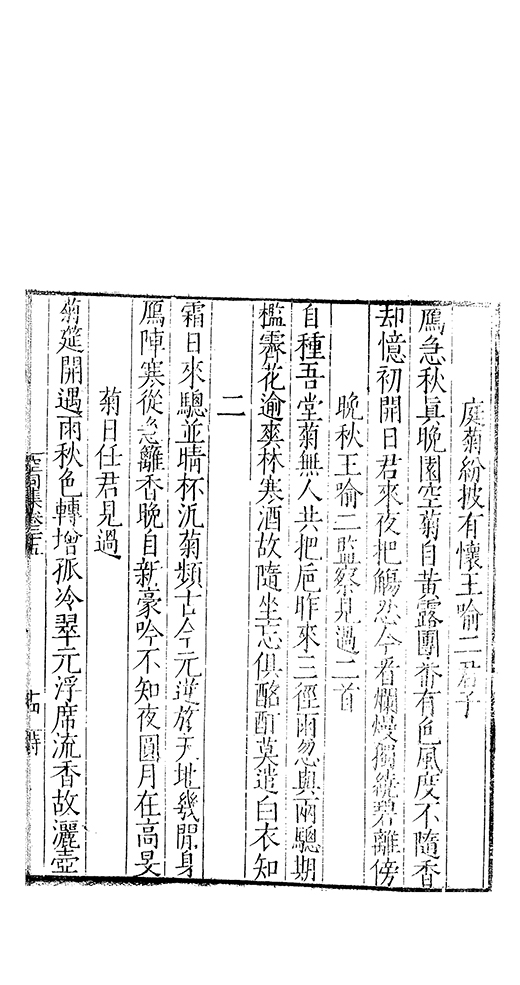 庭菊紛披有懷王喻二君子
鴈急秋真晚園空菊自黃露團畨有色風度不隨香
却憶初開日君來夜把觴忍今看爛熳獨繞碧籬傍
晚秋王喻二監察見過二首
自種吾堂菊無人共把巵昨來三徑雨忽與兩驄期
檻霽花逾爽林寒酒故隨坐忘俱酩酊莫遣白衣知
二
霜日來驄並晴杯汎菊頻古今元逆旅天地幾閒身
鴈陣寒從急籬香晚自新豪吟不知夜圓月在高旻
菊日任君見過
菊筵開遇雨秋色轉增孤冷翠元浮席流香故灑壺
空同集卷二十五